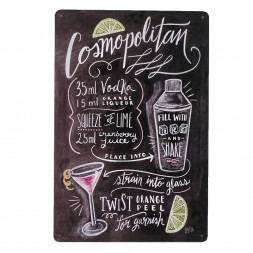 Cosmopolitan
35ml Vodka
15ml ORANGE LIQUEUR
SQUEEZE OF LIME
25ml cranberry juice
PLACE INTO
FILL WITH
ICE
AND
SHAKE
strain into glass
TWIST ORANGE PEEL
for garnish